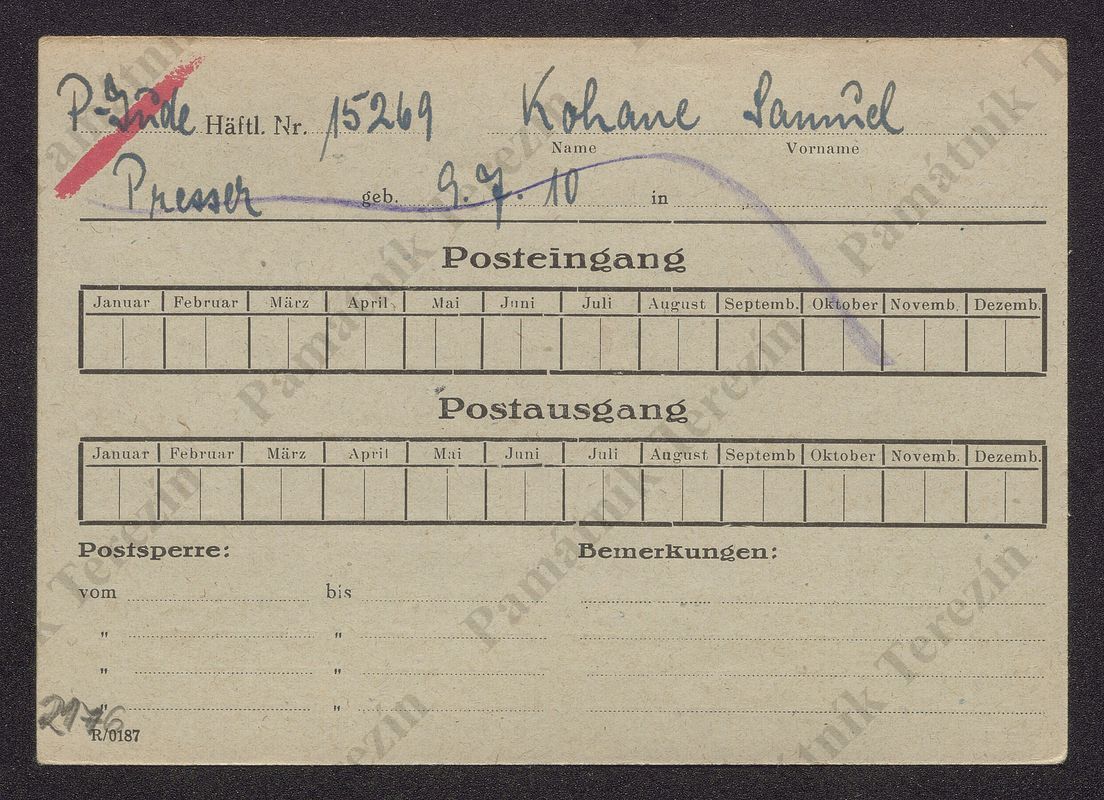 P-Jude Häftl. Nr. 15269 Kohane Samuel
Name Vorname
Presser geb. 9.7.10 in
Posteingang
Januar Februar März April Mai Juni Juli August Septemb. Oktober Novemb. Dezemb.
Postausgang
Januar Februar März April Mai Juni Juli August Septemb Oktober Novemb. Dezemb.
Postsperre: Bemerkungen:
vom bis
" "
" "
" "
2176
R/0187
Památník Terezín